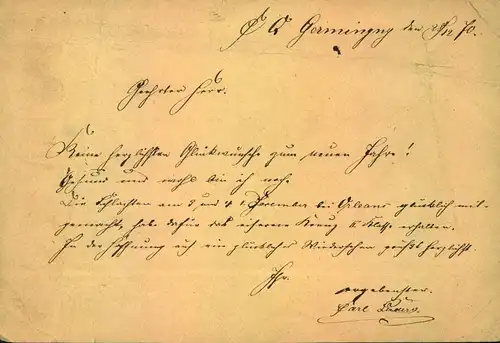 H Q Germingny den 70.
Geehrter Herr.
Meine herzlichsten Glückwünsche zum neuen Jahre!
Gesund und wohl bin ich noch.
Die Schlachten am 3 und 4 t. Dezember bei Orleans glücklich mit-
gemacht, habe dafür das eiserne Kreuz II Klasse erhalten.
In der Hoffnung auf ein glückliches Wiedersehen grüßt herzlichst.
Ihr.
ergebenster.
Carl